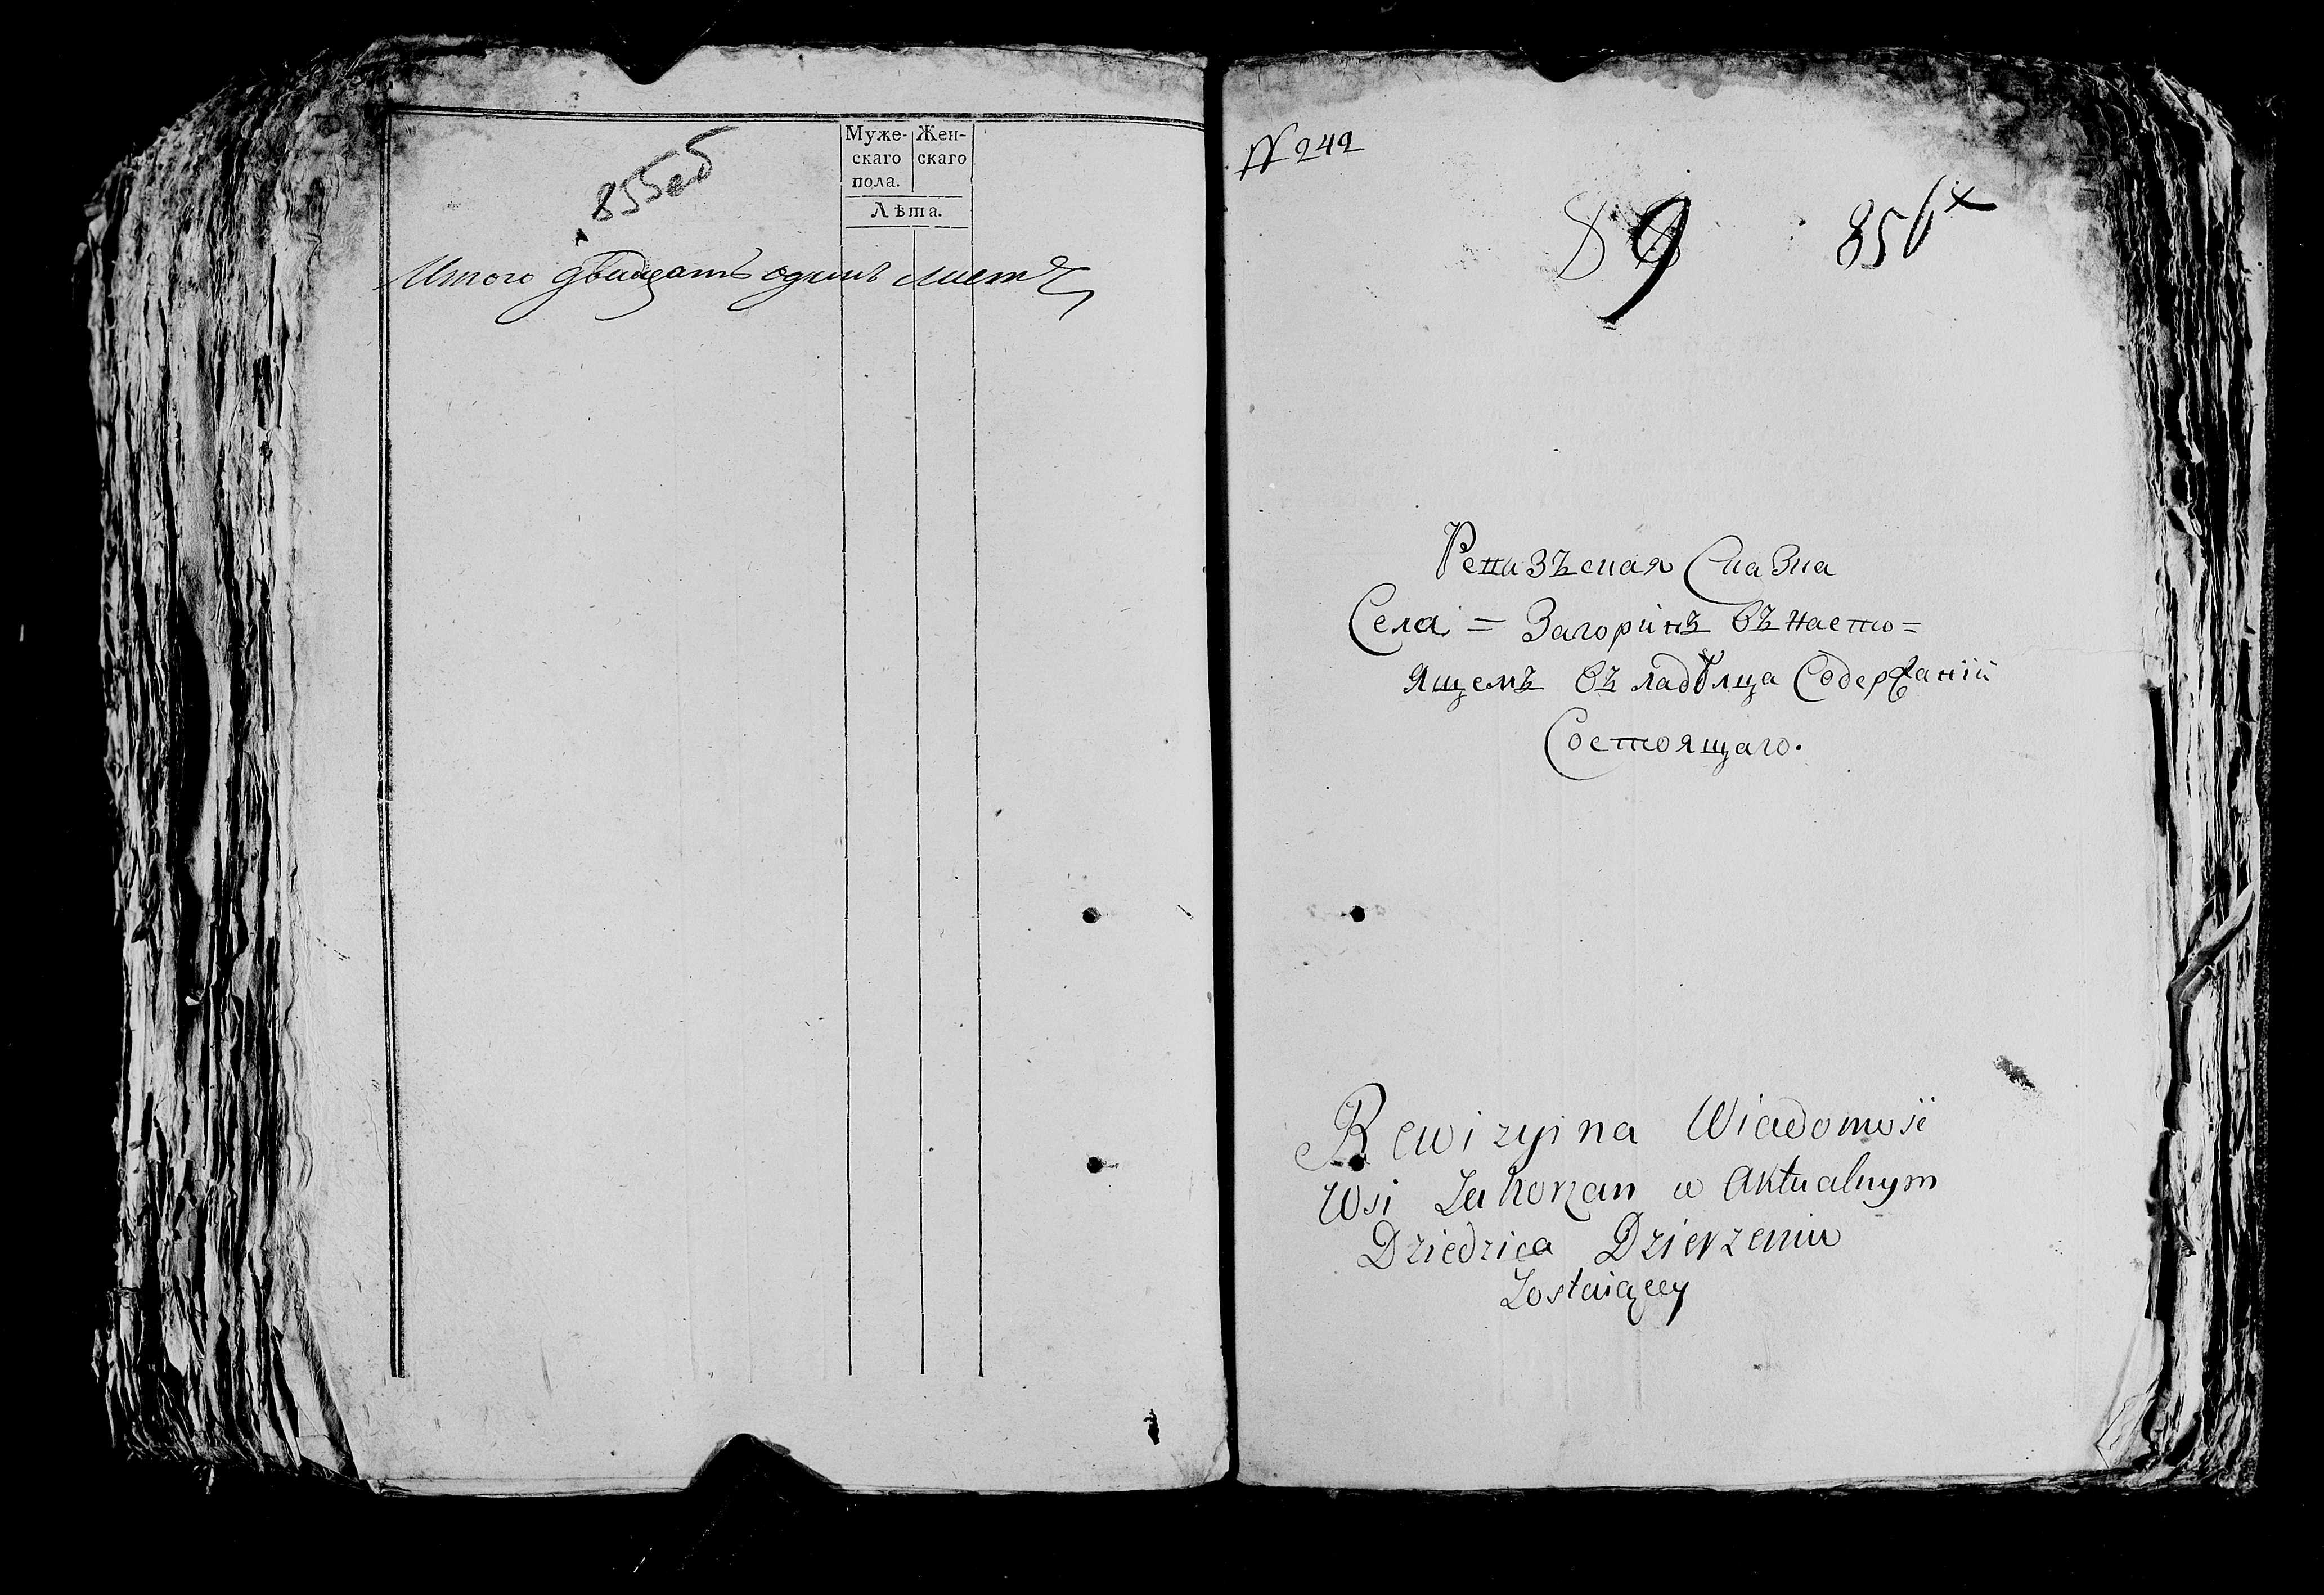 855об
Муже-
скаго
пола.
Жен-
скаго
Лѣта.
Итого двадцать одинъ листъ
N 242
89
856
Ревизъская Сказка
Села = Загоринъ въ насто=
ящемъ въ ладѣлца Содержаніи
Состоящаго.
Rewizyina Wiadomość
Wsi Zahorzan w Aktualnym
Dziedzica Dzierzeniu
Zostaiącey